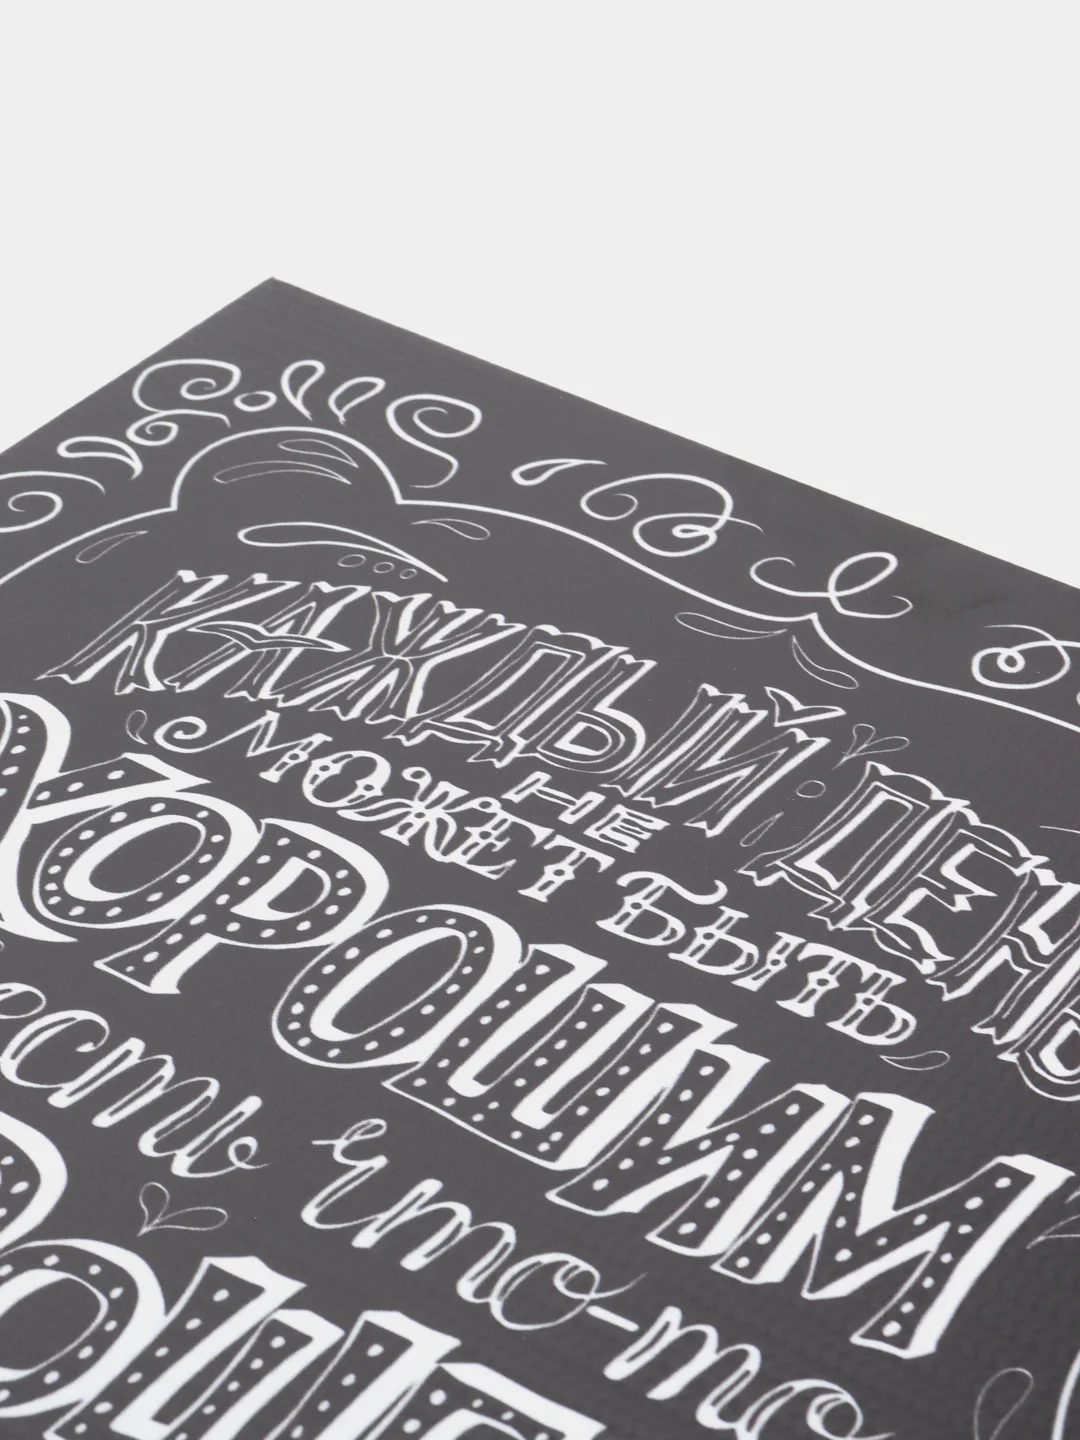 КАЖДЫЙ ДЕНЬ
НЕ
МОЖЕТ БЫТЬ
ХОРОШИМ
есть что-то